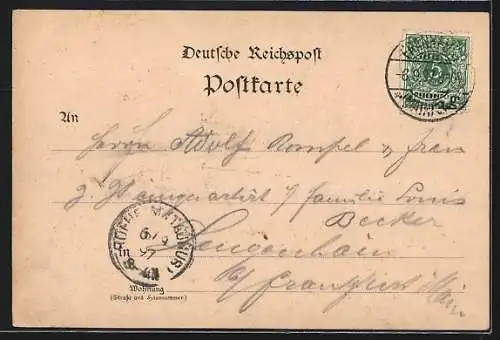 Deutsche Reichspost
Postkarte
An
Herrn Adolf Rompel & Frau
z. Z. Familie Louis
Becker
in Langenhain
b/ Frankfurt Main
Wohnung
(Straße und Hausnummer)
5
HOFHEIM
6/9
97